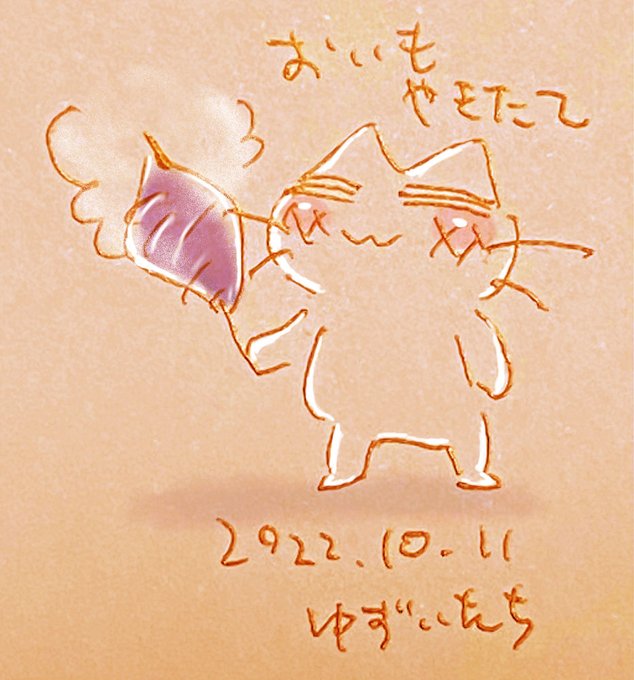 おいも
やきたて
2022.10.11
ゆずいたち